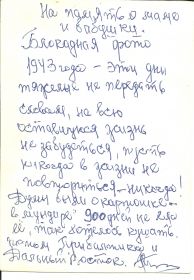 На память о маме
и бабушки.
Блокадная фото
1943 года - эти дни
тяжелые не передать
словами, на всю
оставшуюся жизнь
не забудеться, пусть
никогда в жизни не
повториться - никогда!
были о картошке
"в мундире" 900 дней не
её, так хотелось кушать.
потом Прибалтика и
Дальный Восток.